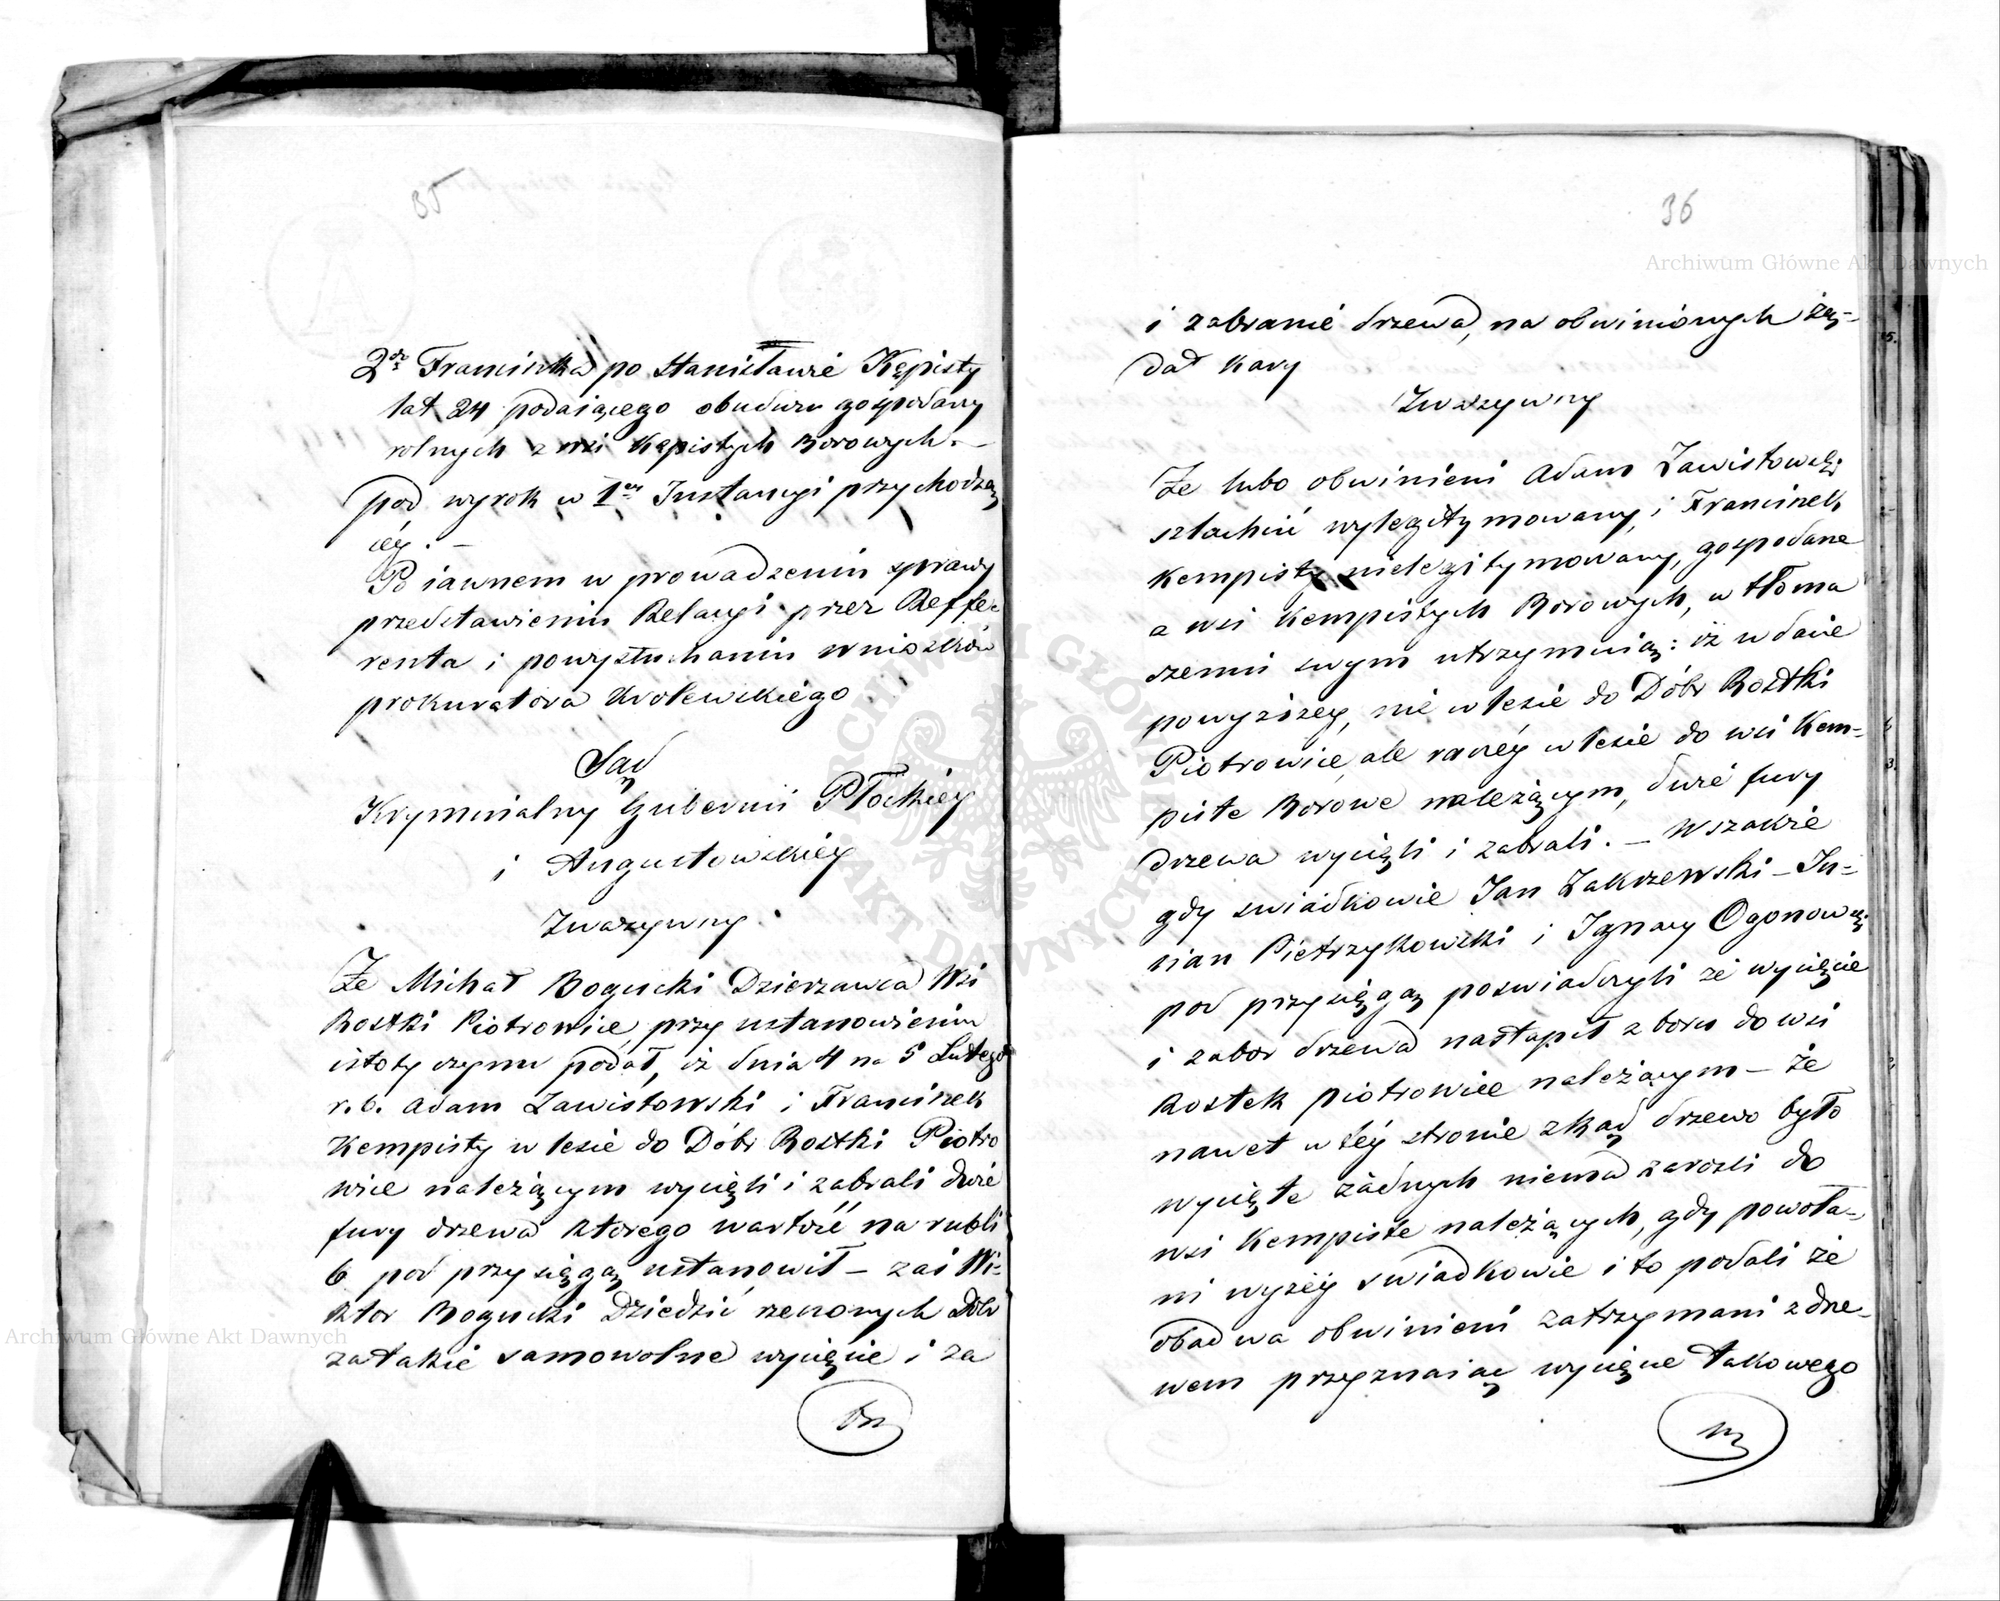 35
2go Franciszka po Stanisławie Kępisty
lat 24 podaiącego obudwu gospodarzy
rolnych z wsi Kępistych Borowych. —
pod wyrok w 1ey Instancyi przychodzą
cey. —
Po iawnem w prowadzeniu sprawy
przedstawieniu Relacyi przez Reffe
renta i powysłuchaniu wniosków
prokuratora Krolewskiego
Sąd
Kryminalny Gubernii Płockiey
i Augustowskiey
Zważywszy.
Że Michał Bogucki Dzierzawca Wsi
Rostki Piotrowice, przy ustanowieniu
istoty czynu podał, iż dnia 4 na 5 Lutego
r.b. Adam Zawistowski i Franciszek
Kempisty w lesie do Dóbr Rostki Piotro
wice należącym wycięli i zabrali dwie
fury drzewa którego wartość na rubli
6 pod przysięgą ustanowił — zaś Wi-
ktor Bogucki Dziedzic rzeczonych Dóbr
za takie samowolne wycięcie i za
36
i zabranie drzewa, na obwinionych żą-
dał kary
Zważywszy
Że lubo obwinieni Adam Zawistowski
szlachcic wylegitymowany, i Franciszek
Kempisty nielegitymowany, gospodarze
z wsi Kempistych Borowych, w tłoma
czeniu swym utrzymuią: iż w dacie
powyższey, nie w lesie do Dóbr Rostki
Piotrowice, ale raczéy w lesie do wsi Kem-
piste Borowe należącym, dwie fury
drzewa wycięli i zabrali. — Wszakże
gdy swiadkowie Jan Zakrzewski — Ju-
lian Pietrzykowski i Ignacy Ogonowski
pod przysięgą poswiadczyli że wycięcie
i zabor drzewa nastąpił z boru do wsi
Rostek Piotrowice należącym — że
nawet w téy stronie zkąd drzewo było
wycięte żadnych niema zarosli do
wsi Kempiste należących, gdy powoła-
ni wyżéy swiadkowie i to podali że
obadwa obwinieni zatrzymani z drze-
wem przyznaiąc wycięcie takowego
Archiwum Główne Akt Dawnych
Archiwum Główne Akt Dawnych
ARCHIWUM GŁÓWNE AKT DAWNYCH